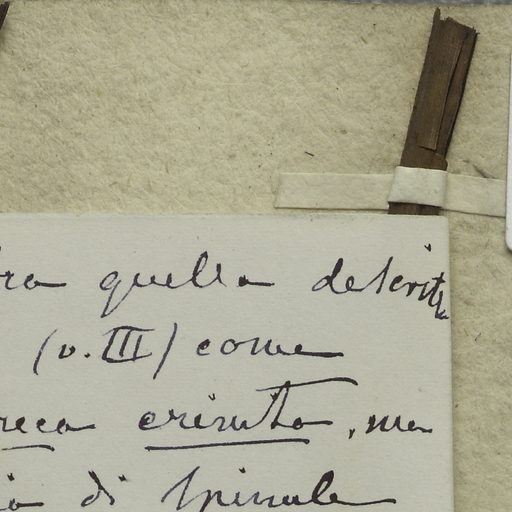 quella descritta
(v. III) come
crinita, ma
di spinule